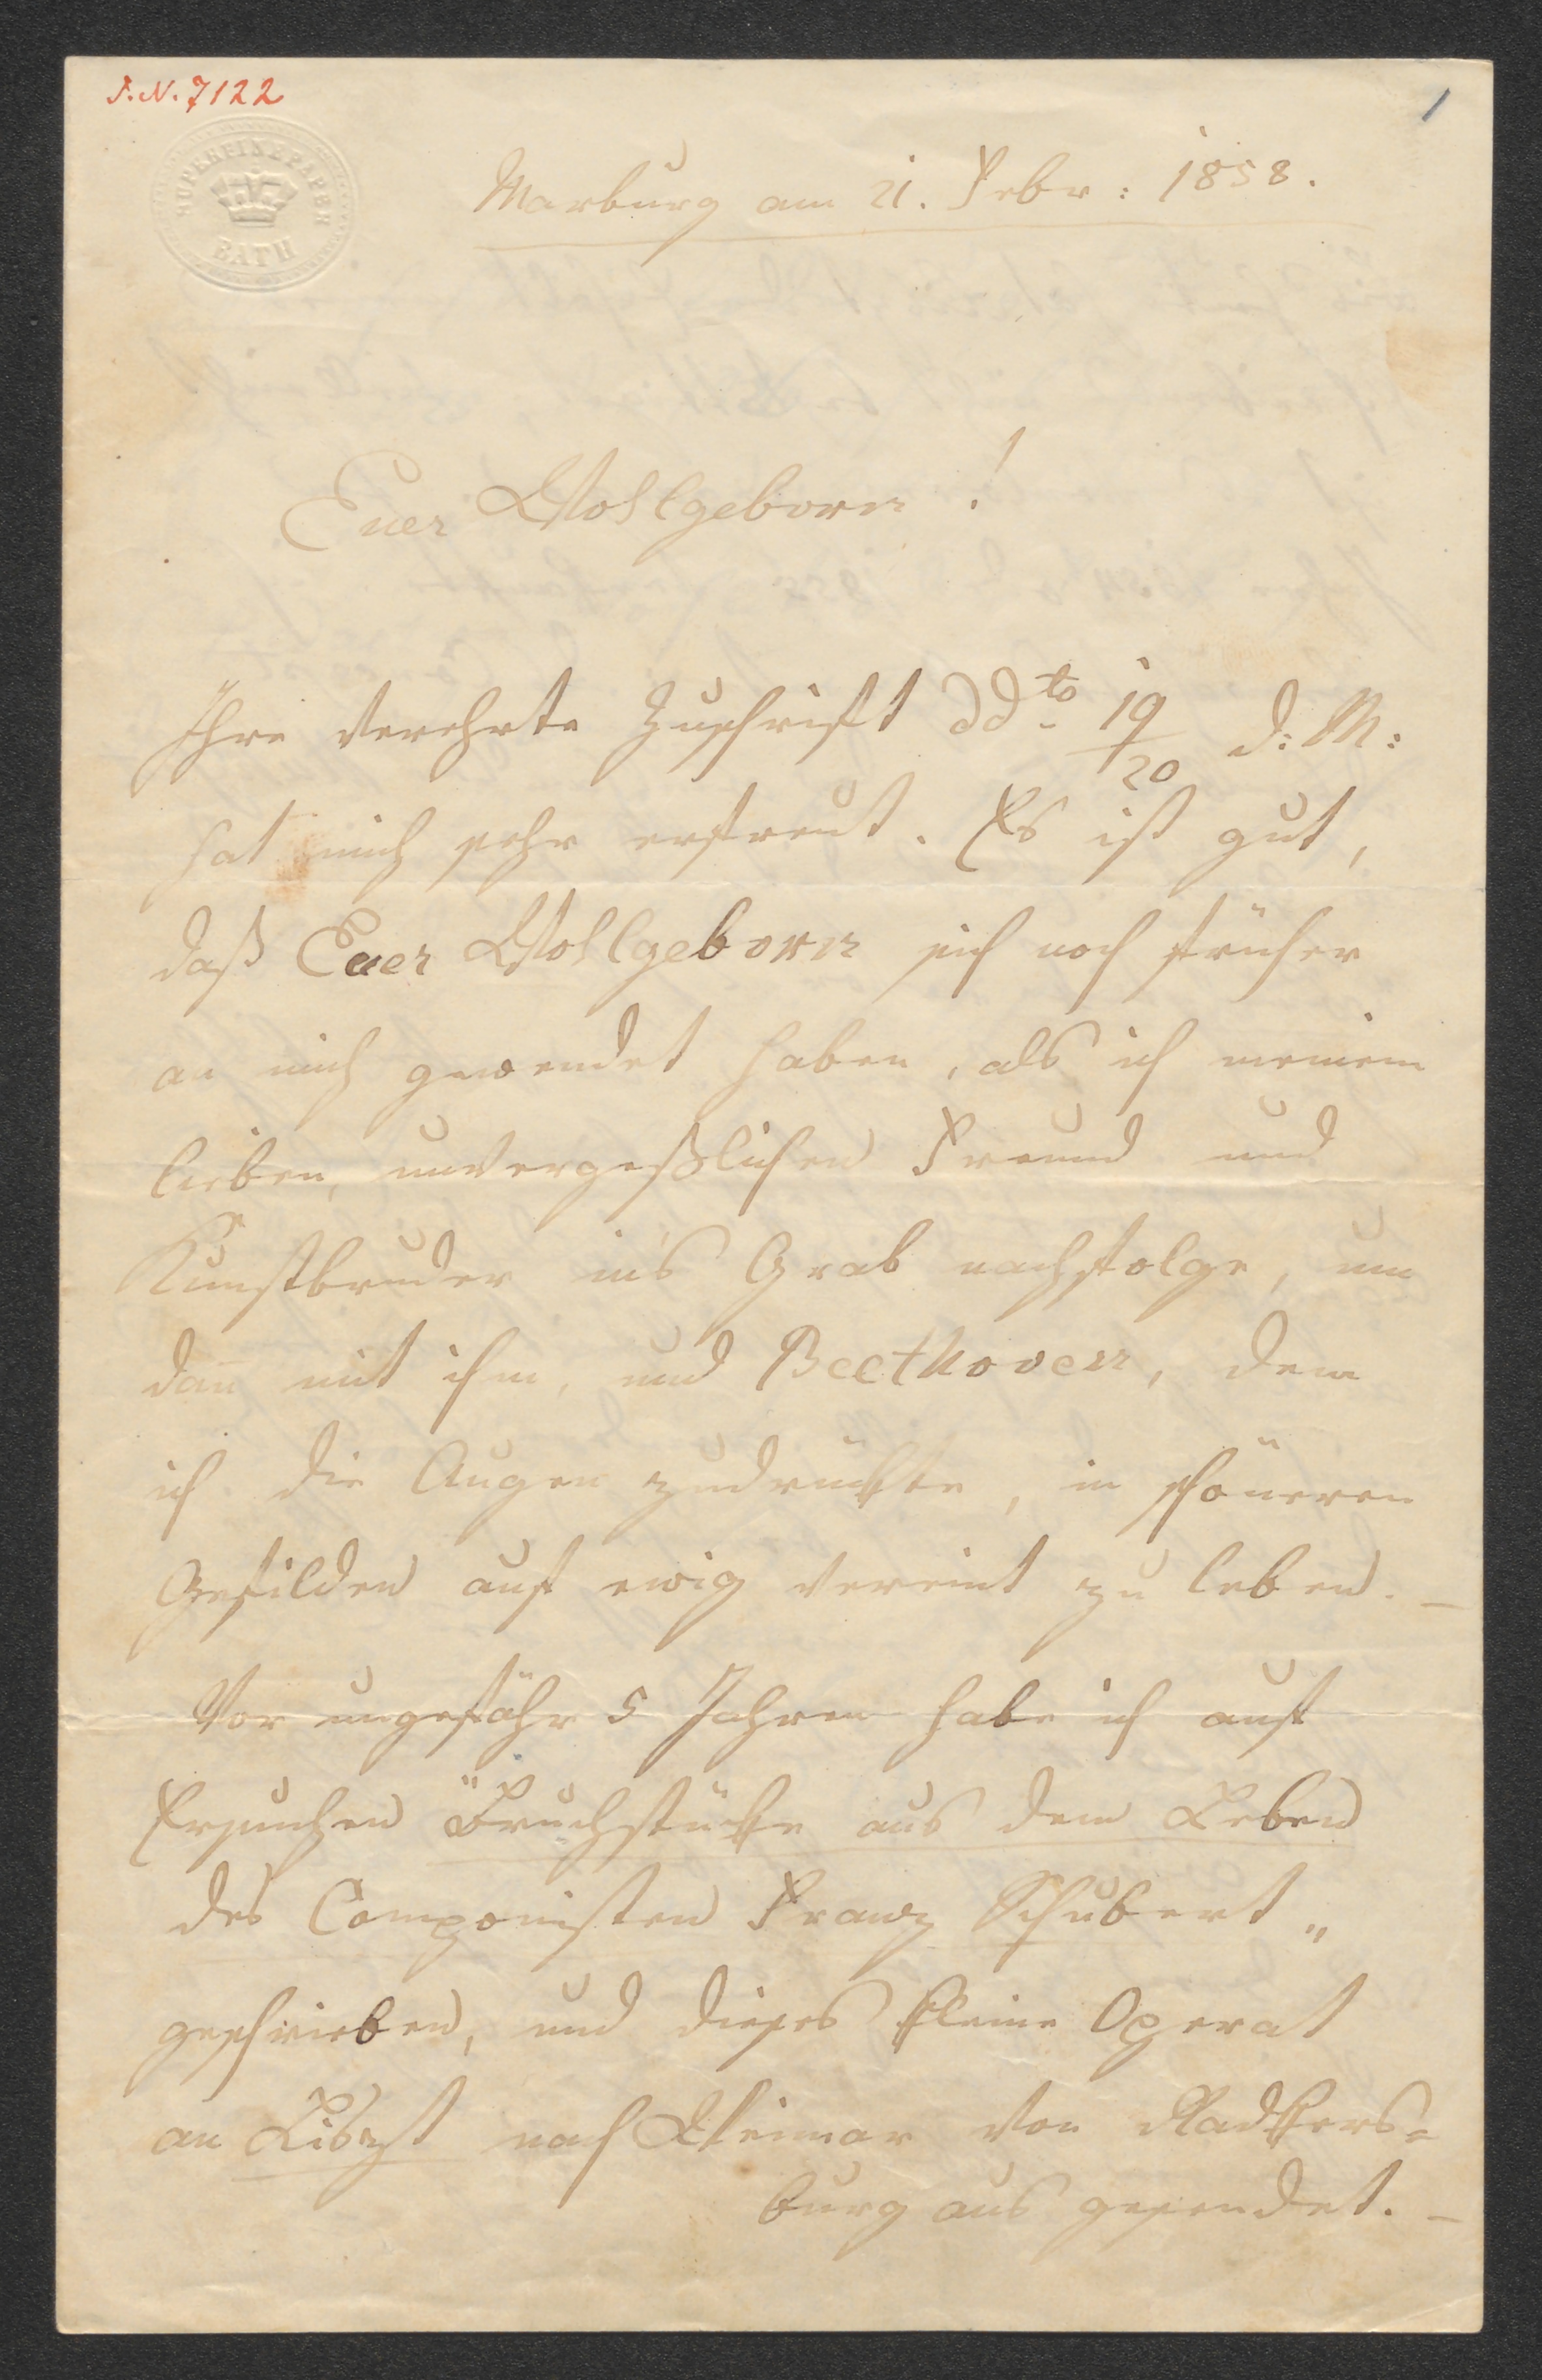 I.N. 7122
1
SUPERFINE PAPER
BATH
Marburg am 21. Febr: 1858.
Euer Wohlgeborn!
Ihre verehrte Zuschrift ddto 19/20 d: M:
hat mich sehr erfreut. Es ist gut,
daß Euer Wohlgeborn sich noch früher
an mich gewendet haben, als ich meinem
lieben, unvergeßlichen Freund und
Kunstbruder in's Grab nachfolge, um
dañ mit ihm, und Beethoven, dem
ich die Augen zudrückte, in schöneren
Gefilden auf ewig vereint zu leben. –
Vor ungefähr 5 Jahren habe ich auf
Ersuchen "Bruchstücke aus dem Leben
des Componisten Franz Schubert„
geschrieben, und dieses kleine Operat
an Liszt nach Weimar von Radkers=
burg aus gesendet. –